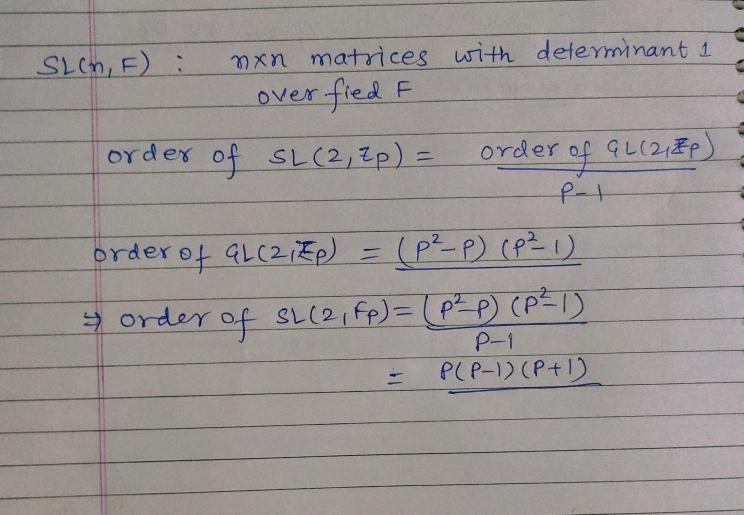 SL(n, F) : nxn matrices with determinant 1
over fied F
order of SL(2, Zp) = order of GL(2, Zp)
P-1
order of GL(2, Zp) = (P²-P) (P²-1)
⇒ order of SL(2, Fp) = (P²-P) (P²-1)
P-1
= P(P-1)(P+1)